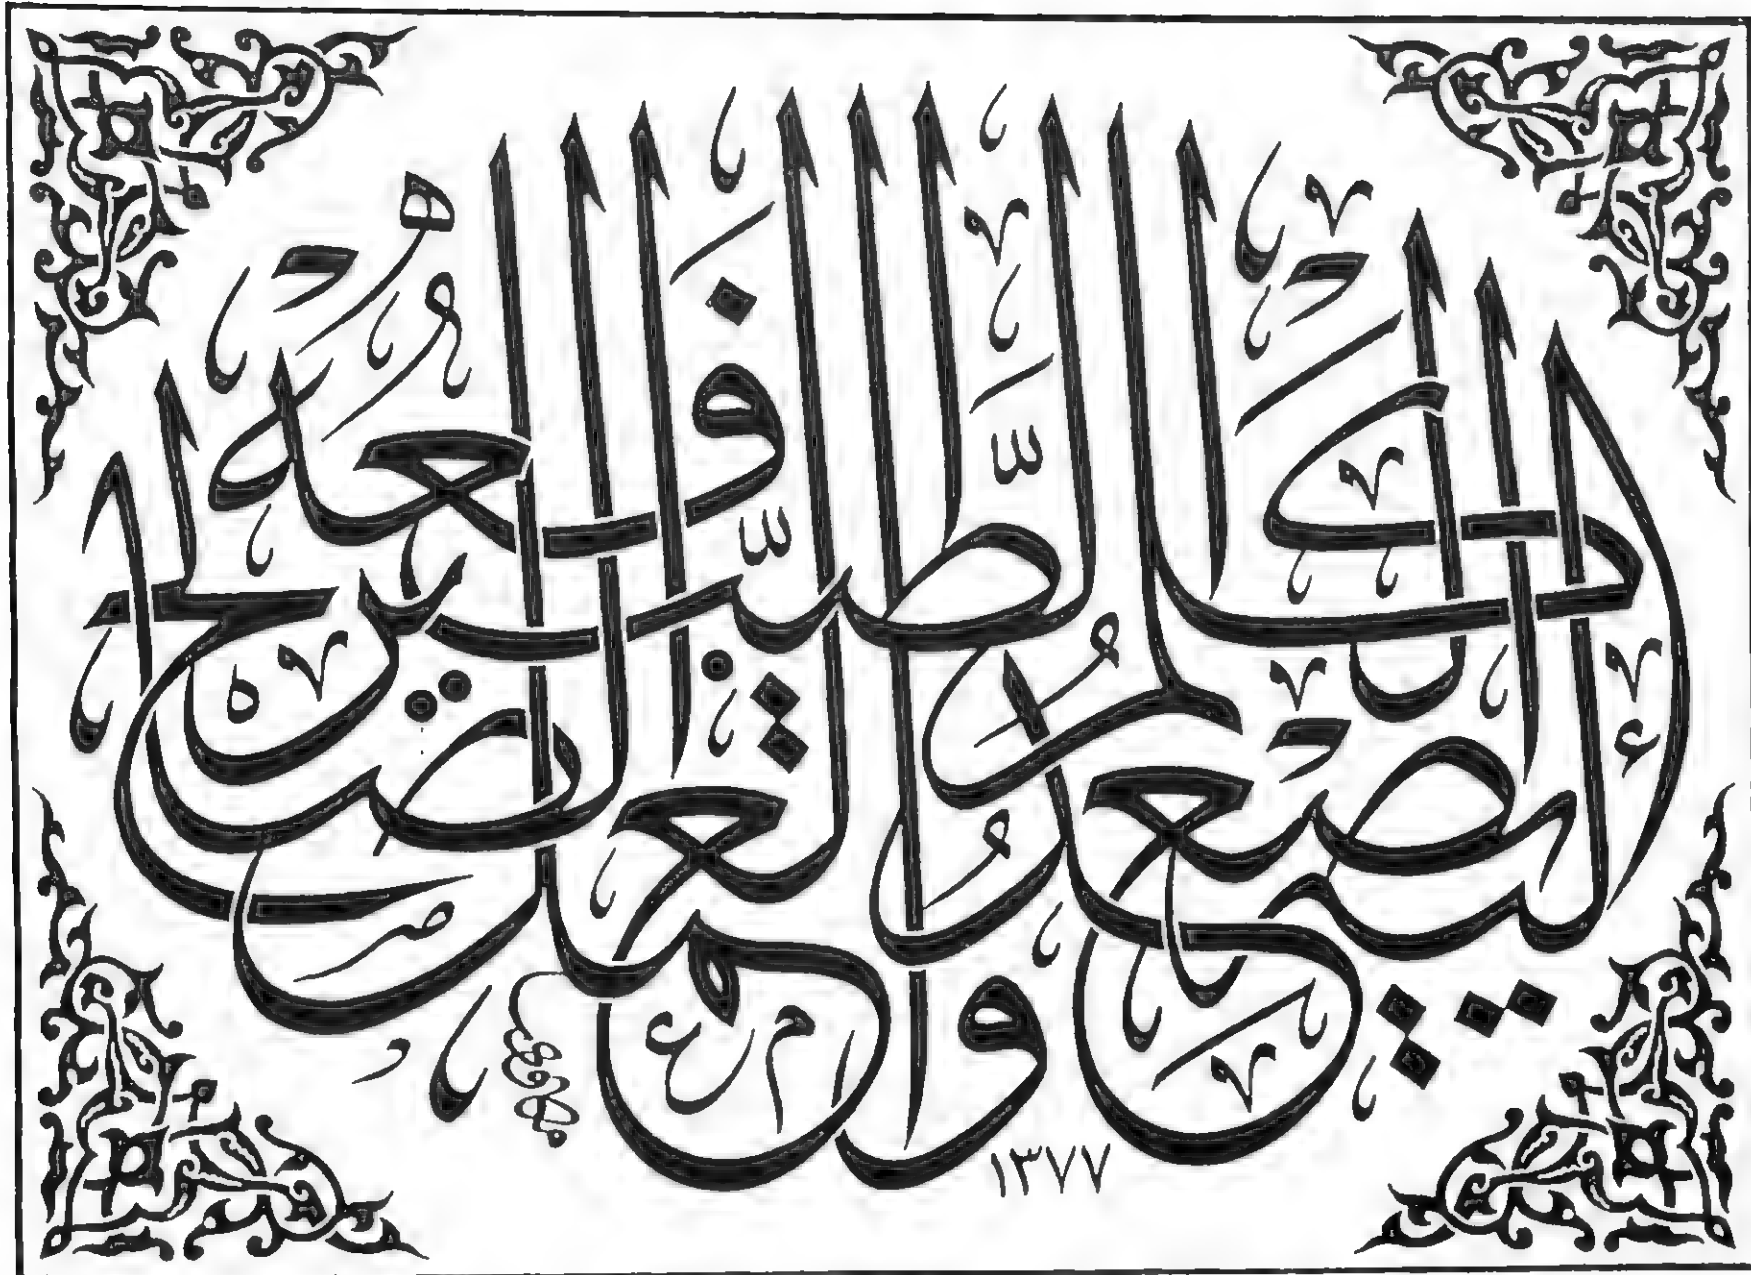 إليه يصعد الكلم الطيب والعمل الصالح يرفعه
١٣٧٧